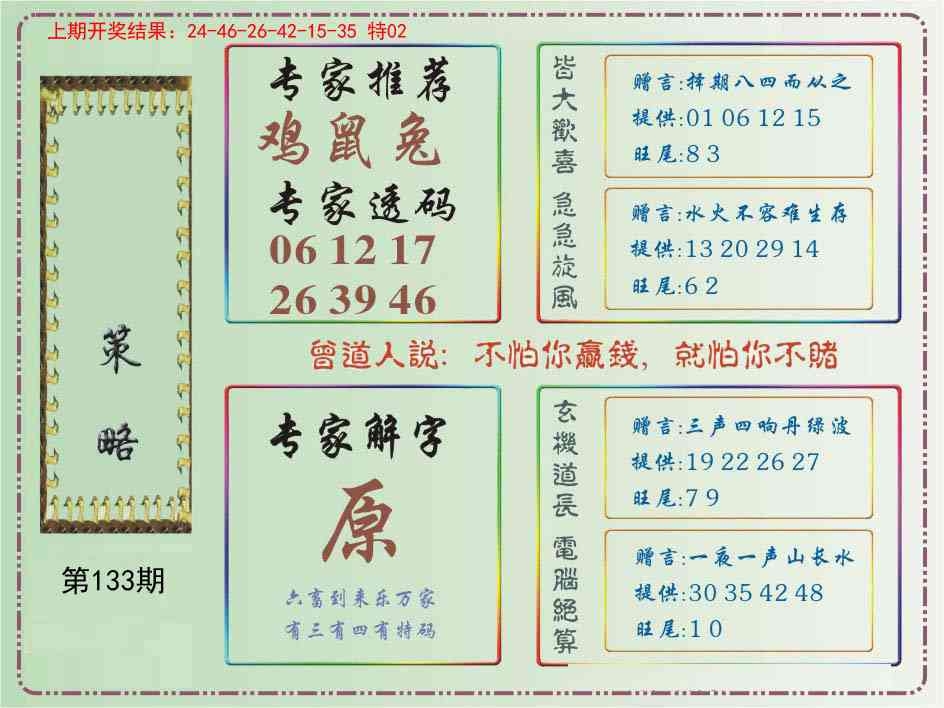 上期开奖结果：24-46-26-42-15-35 特02
策略
第133期
专家推荐
鸡鼠兔
专家透码
06 12 17
26 39 46
皆大歡喜
赠言:择期八四而从之
提供:01 06 12 15
旺尾:8 3
急急旋風
赠言:水火不容难生存
提供:13 20 29 14
旺尾:6 2
曾道人説：不怕你贏錢，就怕你不賭
专家解字
原
六畜到来乐万家
有三有四有特码
玄機道長
赠言:三声四响丹绿波
提供:19 22 26 27
旺尾:7 9
電腦絕算
赠言:一夜一声山长水
提供:30 35 42 48
旺尾:1 0